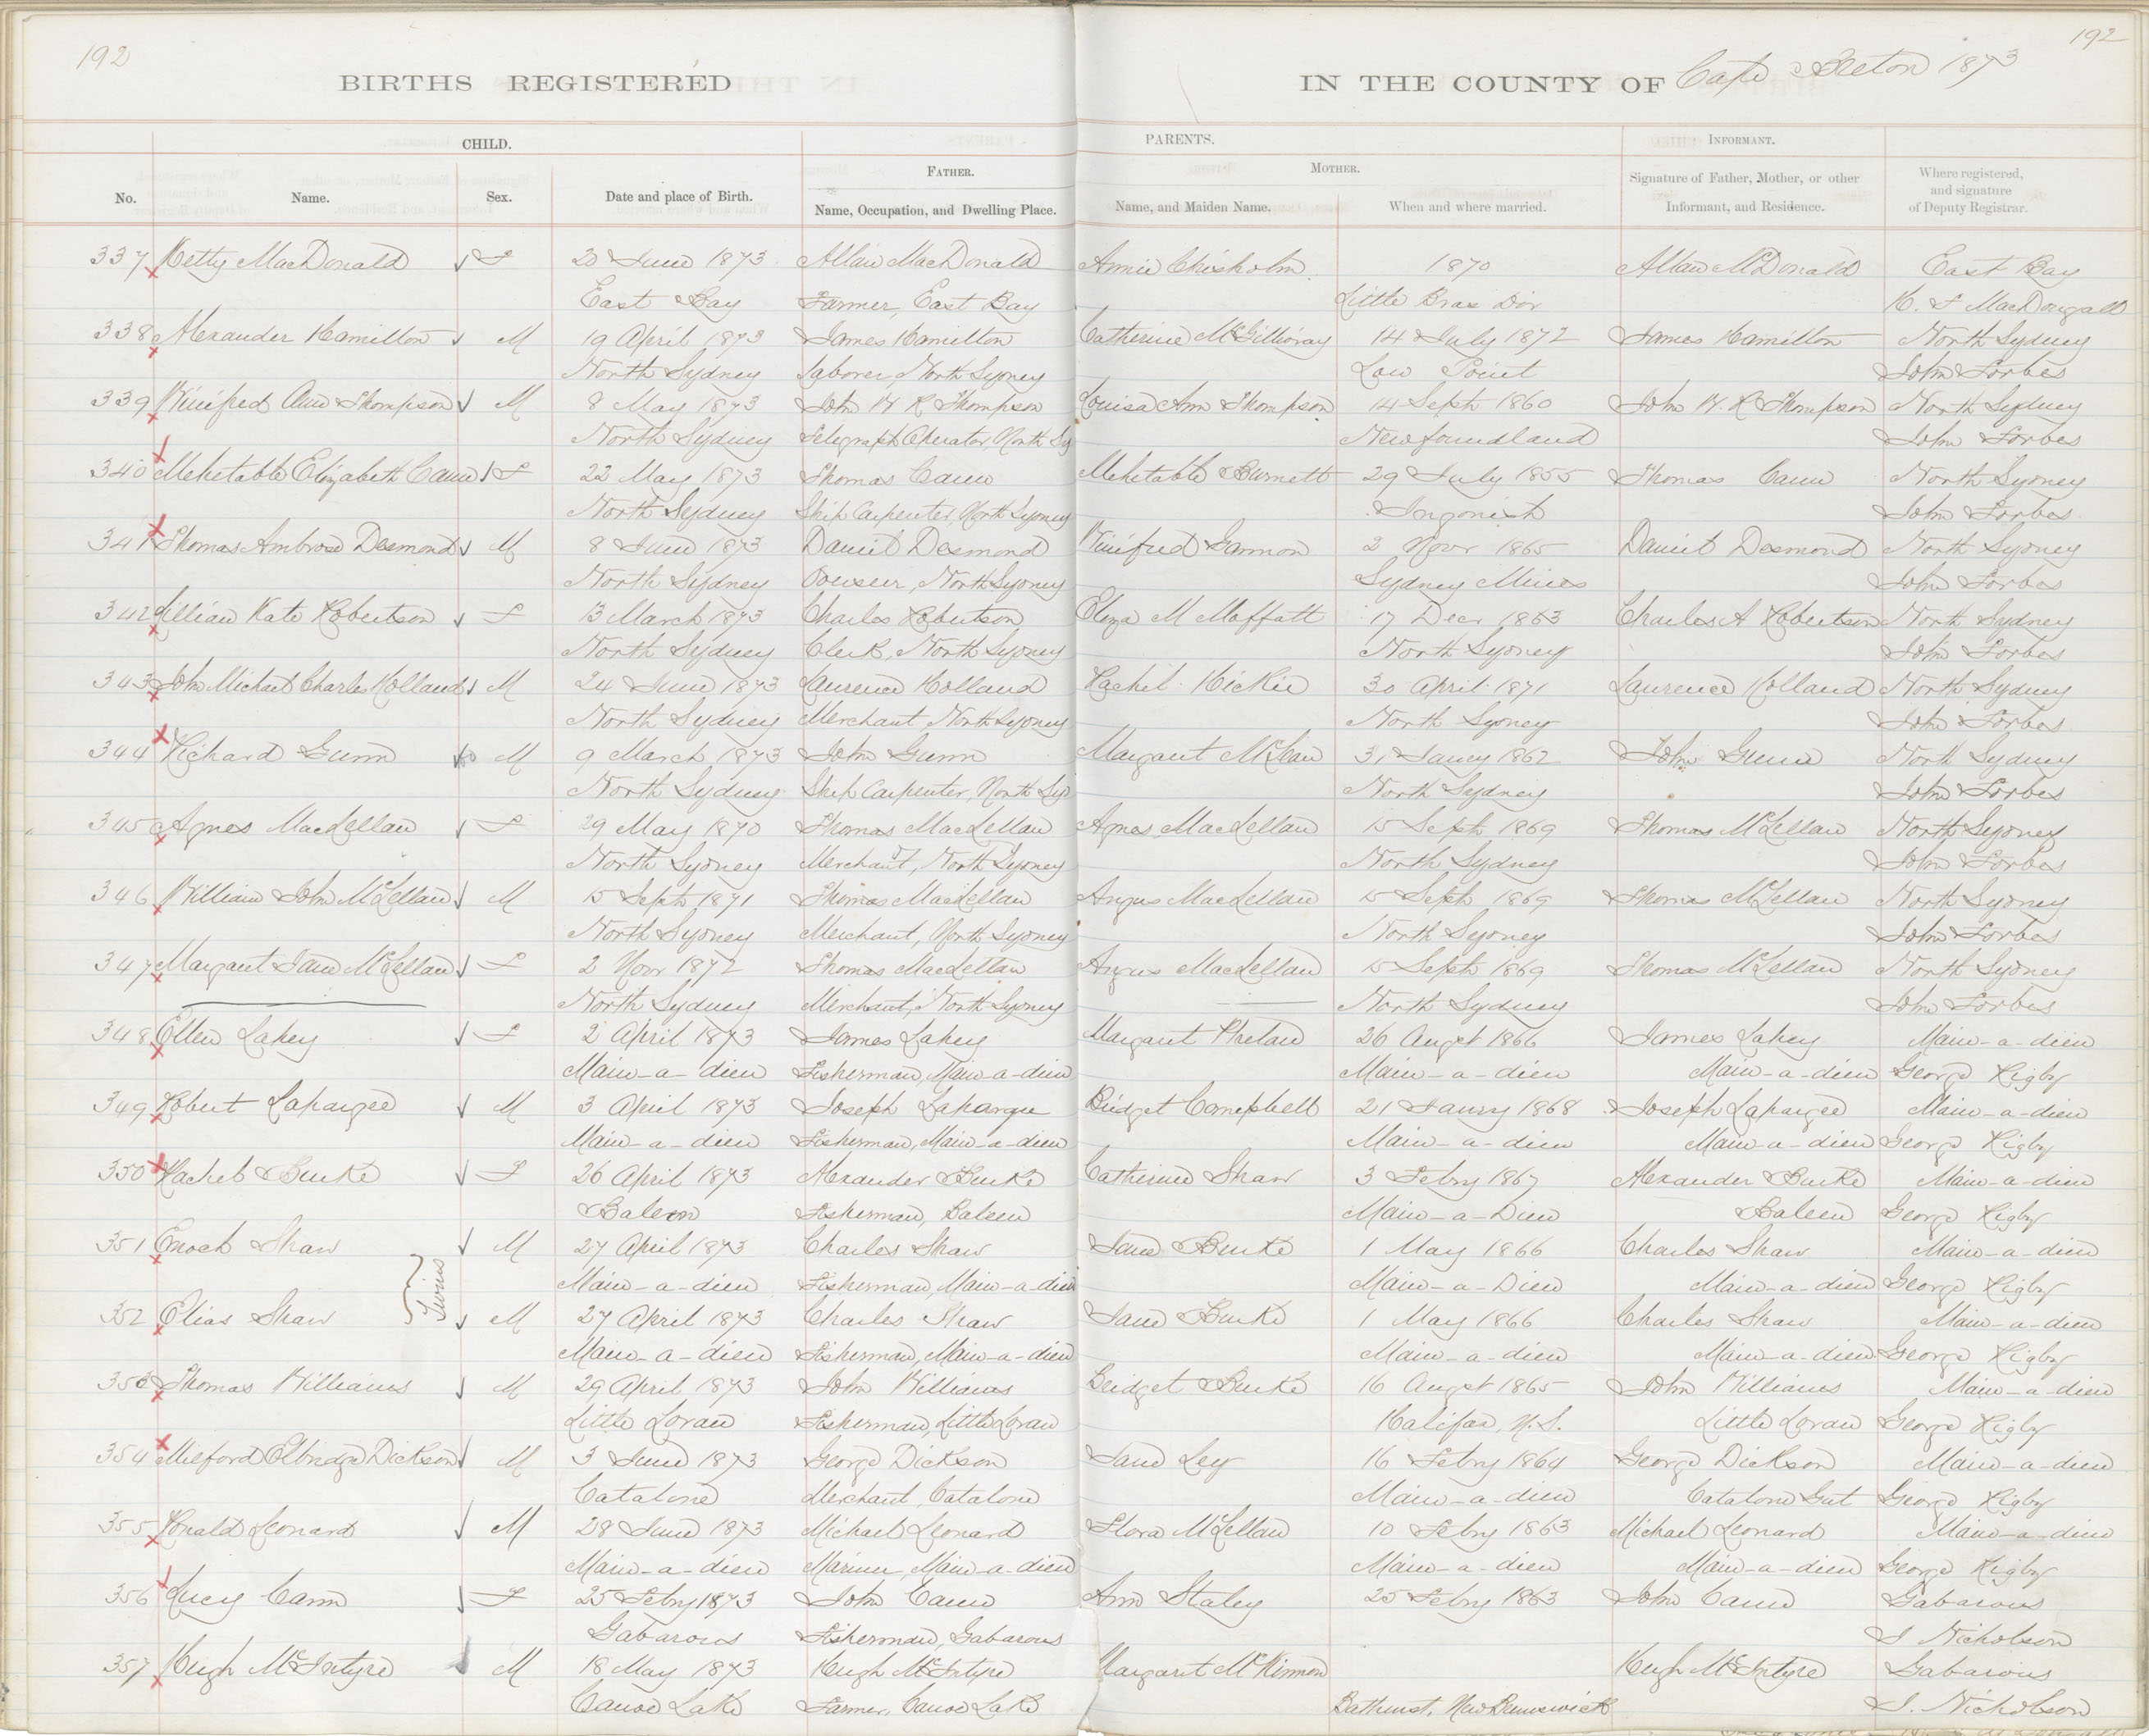 192
192
BIRTHS REGISTERED
IN THE COUNTY OF Cape Breton 1873
CHILD.
PARENTS.
INFORMANT.
FATHER.
MOTHER.
No.
Name.
Sex.
Date and place of Birth.
Name, Occupation, and Dwelling Place.
Name, and Maiden Name.
When and where married.
Signature of Father, Mother, or other Informant, and Residence.
Where registered, and signature of Deputy Registrar.
337 Hetty MacDonald F 20 June 1873 Allan MacDonald Annie Chisholm 1870 Allan McDonald East Bay
East Bay Farmer, East Bay Little Bras Dor H. F MacDougall
338 Alexander Hamilton M 19 April 1873 James Hamilton Catherine McGillivray 14 July 1872 James Hamilton North Sydney
North Sydney Laborer, North Sydney Low Point John Forbes
339 Winifred Ann Thompson M 8 May 1873 John W R Thompson Louisa Ann Thompson 14 Septr 1860 John W. R Thompson North Sydney
North Sydney Telegraph Operator, North Sy Newfoundland John Forbes
340 Mehetable Elizabeth Cann F 22 May 1873 Thomas Cann Mehetable Burnett 29 July 1855 Thomas Cann North Sydney
North Sydney Ship Carpenter, North Sydney Ingonish John Forbes
341 Thomas Ambrose Desmond M 8 June 1873 Daniel Desmond Winifred Gannon 2 Novr 1865 Daniel Desmond North Sydney
North Sydney North Sydney Sydney Mines John Forbes
342 Lillian Kate Robertson F 13 March 1873 Charles Robertson Eliza M Moffatt 17 Decr 1863 Charles A Robertson North Sydney
North Sydney Clerk, North Sydney North Sydney John Forbes
343 John Michael Charles Holland M 24 June 1873 Laurence Holland Rachel Hickie 30 April 1871 Laurence Holland North Sydney
North Sydney Merchant, North Sydney North Sydney John Forbes
344 Richard Gunn M 9 March 1873 John Gunn Margaret McLean 31 Jany 1862 John Gunn North Sydney
North Sydney Ship Carpenter, North Syd North Sydney John Forbes
345 Agnes MacLellan F 29 May 1870 Thomas MacLellan Agnes MacLellan 15 Septr 1869 Thomas McLellan North Sydney
North Sydney Merchant, North Sydney North Sydney John Forbes
346 William John McLellan M 15 Septr 1871 Thomas MacLellan Angus MacLellan 15 Septr 1869 Thomas McLellan North Sydney
North Sydney Merchant, North Sydney North Sydney John Forbes
347 Margaret Jane McLellan F 2 Novr 1872 Thomas MacLellan Angus MacLellan 15 Septr 1869 Thomas McLellan North Sydney
North Sydney Merchant, North Sydney North Sydney John Forbes
348 Ellen Lahey F 2 April 1873 James Lahey Margaret Phelan 26 Augst 1866 James Lahey Main-a-dieu
Main-a-dieu Fisherman, Main-a-dieu Main-a-dieu Main-a-dieu George Rigby
349 Robert Lapargee M 3 April 1873 Joseph Lapargee Bridget Campbell 21 Janry 1868 Joseph Lapargee Main-a-dieu
Main-a-dieu Fisherman, Main-a-dieu Main-a-dieu Main-a-dieu George Rigby
350 Rachel Burke F 26 April 1873 Alexander Burke Catherine Shaw 3 Febry 1867 Alexander Burke Main-a-dieu
Baleen Fisherman, Baleen Main-a-Dieu Baleen George Rigby
351 Enoch Shaw M 27 April 1873 Charles Shaw Jane Burke 1 May 1866 Charles Shaw Main-a-dieu
Twins
Main-a-dieu Fisherman, Main-a-dieu Main-a-Dieu Main-a-dieu George Rigby
352 Elias Shaw M 27 April 1873 Charles Shaw Jane Burke 1 May 1866 Charles Shaw Main-a-dieu
Main-a-dieu Fisherman, Main-a-dieu Main-a-dieu Main-a-dieu George Rigby
353 Thomas Williams M 29 April 1873 John Williams Bridget Burke 16 Augst 1865 John Williams Main-a-dieu
Little Loran Fisherman, Little Loran Halifax, N.S. Little Loran George Rigby
354 Milford Elbridge Dickson M 3 June 1873 George Dickson Jane Ley 16 Febry 1864 George Dickson Main-a-dieu
Catalone Merchant, Catalone Main-a-dieu Catalone Gut George Rigby
355 Ronald Leonard M 28 June 1873 Michael Leonard Flora McLellan 10 Febry 1863 Michael Leonard Main-a-dieu
Main-a-dieu Mariner, Main-a-dieu Main-a-dieu Main-a-dieu George Rigby
356 Lucy Cann F 25 Febry 1873 John Cann Ann Staley 25 Febry 1863 John Cann Gabarous
Gabarous Fisherman, Gabarous J Nicholson
357 Hugh McIntyre M 18 May 1873 Hugh McIntyre Margaret McKinnon Hugh McIntyre Gabarous
Canoe Lake Farmer, Canoe Lake Bathurst, New Brunswick J. Nicholson